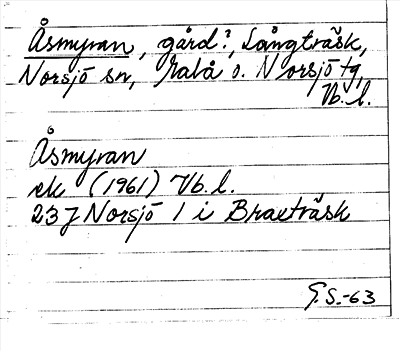 Åsmyran, gård?, Långträsk,
Norsjö sn, Malå o. Norsjö tg,
Vb. l.
Åsmyran
ek (1961) Vb. l.
23 J Norsjö 1 i Braxträsk
G.S.-63